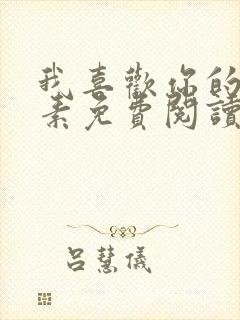 我喜歡你的
素免費閱讀
呂慧儀